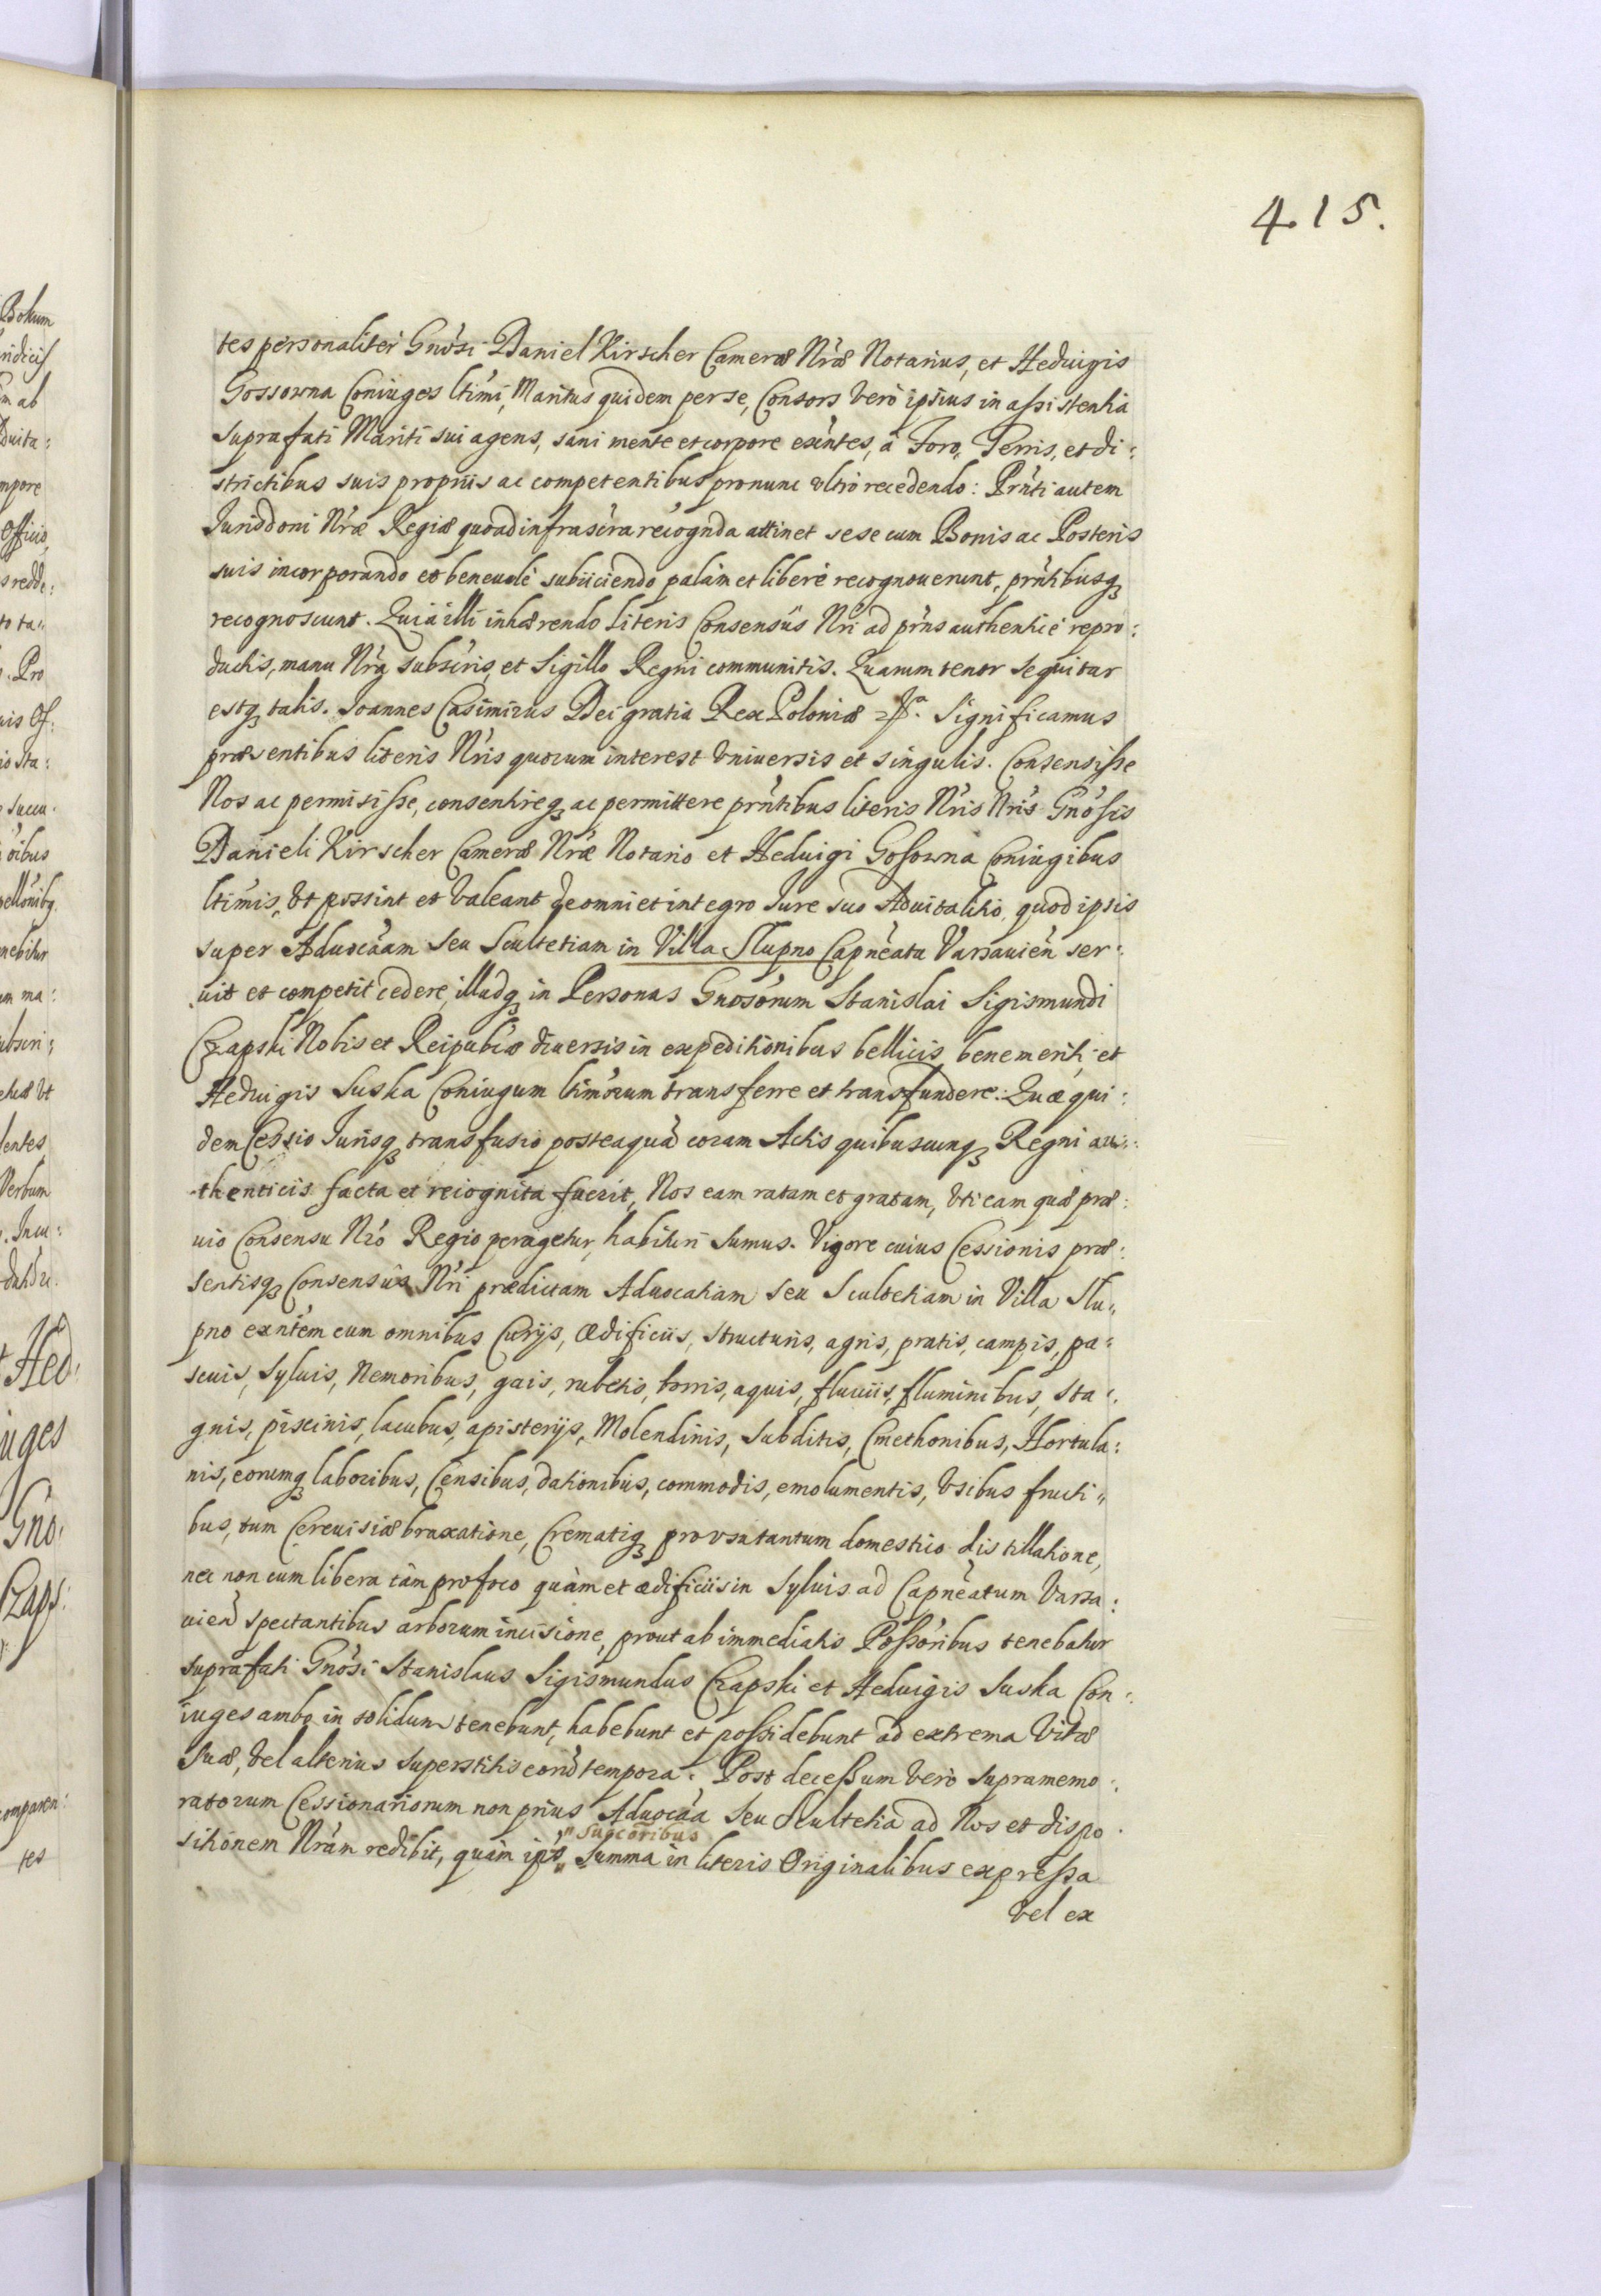 415.
tes personaliter Gnosi Daniel Kirscher Cameræ Nræ Notarius, et Heduigis
Gossowna Coniuges ltimi, Maritus quidem per se, Consors verò ipsius in assistentia
suprafati Mariti sui agens, sani mente et corpore exñtes, à Foro, Terris, et di:
strictibus suis propriis ac competentibus pronunc vltrò recedendo: Prñti autem
Jurisddoni Nræ Regiæ quoad infrascra recognda attinet sese cum Bonis ac Posteris
suis incorporando et beneuolè subiiciendo palàm et liberè recognouerunt, prñtibusq
recognoscunt. Quia illi inhærendo literis Consensûs Nri ad prñs authenticè repro:
ductis, manu Nra subscris, et Sigillo Regni communitis. Quarum tenor sequitur
estq talis. Joannes Casimirus Dei gratia Rex Poloniæ &ca. Significamus
præsentibus literis Nris quorum interest vniuersis et singulis. Consensisse
Nos ac permisisse, consentireq ac permittere prñtibus literis Nris Nris Gnosis
Danieli Kirscher Cameræ Nræ Notario et Heduigi Gosowna Coniugibus
ltimis, Vt possint et valeant de omni et integro Jure suo Aduitalitio, quod ipsis
super Aduocãam seu Scultetiam in Villa Slupno Capneatu Varsauien ser:
uit et competit cedere, illudq in Personas Gnosorum Stanislai Sigismundi
Czapski Nobis et Reipublcæ diuersis in expeditionibus bellicis benemeriti et
Heduigis Suska Coniugum ltimorum transferre et transfundere: Quæ qui:
dem Cessio Jurisq transfusio posteaquã coram Actis quibuscunq Regni au:
thenticis facta et recognita fuerit, Nos eam ratam et gratam, vti eam quæ præ:
uio Consensu Nro Regio peragetur, habituri sumus. Vigore cuius Cessionis præ:
sentisq Consensûs Nri prædictam Aduocatiam seu Scultetiam in Villa Slu„
pno exntem cum omnibus Curijs, ædificiis, structuris, agris, pratis, campis, pa:
scuis, Syluis, Nemoribus, gais, rubetis, borris, aquis, fluuiis, fluminibus, Sta:
gnis, piscinis, lacubus, apisterijs, Molendinis, Subditis, Cmethonibus, Hortula:
nis, eorumq laboribus, Censibus, dationibus, commodis, emolumentis, Vsibus fructi„
bus, tum Cereuisiæ braxatione, Crematiq pro vsu tantum domestico distillatione,
nec non cum libera tàm pro foco quàm et ædificiis in Syluis ad Capneatum Varsa:
uien spectantibus arborum incisione, prout ab immediatis Possoribus tenebatur
suprafati Gnosi Stanislaus Sigismundus Czapski et Heduigis Suska Con:
iuges ambo in solidum tenebunt, habebunt et possidebunt ad extrema Vitæ
Suæ, vel alterius superstitis eorũ tempora. Post decessum verò supramemo:
ratorum Cessionariorum non prius Aduocãa seu Scultetia ad Nos et dispo
sitionem Nram redibit, quàm ipis „succoribus„ Summa in literis Originalibus expressa
vel ex